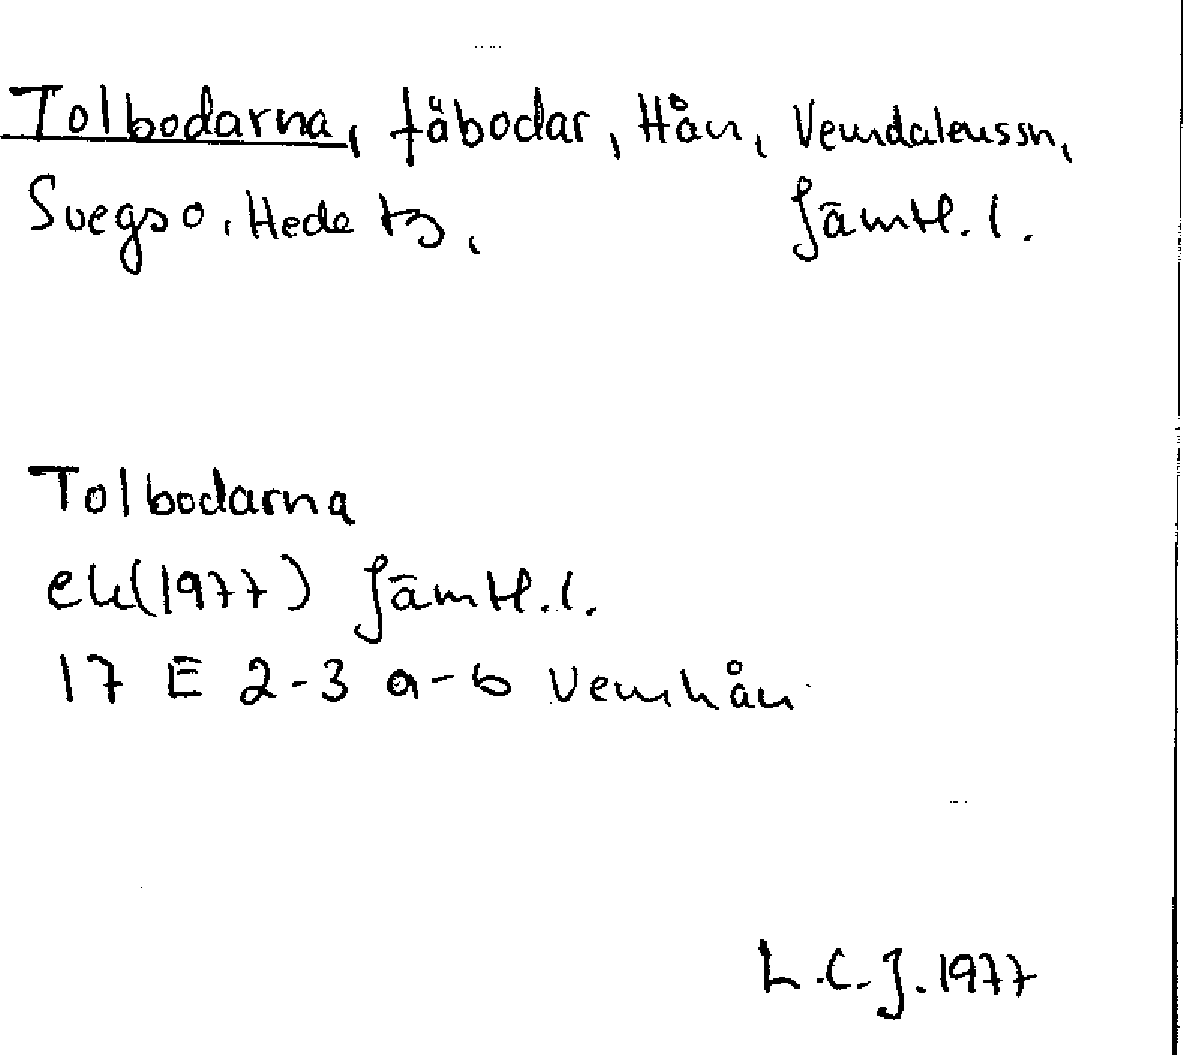 Tolbodarna, fäbodar, Hån, Vemdalenssn,
Svegs o. Hede tg, Jämtl. l.
Tolbodarna
ek (1977) Jämtl. l.
17 E 2-3 a-b Vemhån
L.C.J. 1977